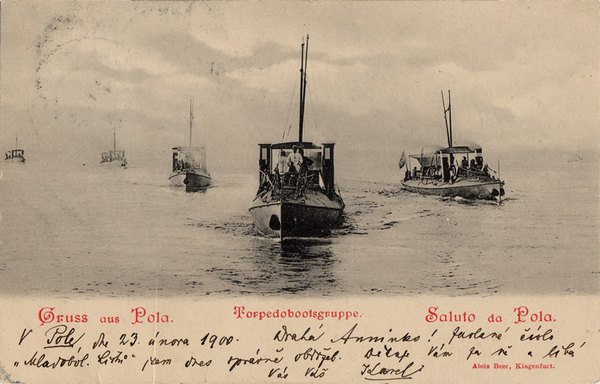 Gruss aus Pola.
Torpedobootsgruppe.
Saluto da Pola.
V Pole, dne 23. února 1900. Drahá Anninko! Zaslané číslo
"Mladobol. Listů" jsem dnes správně obdržel. Děkuji Vám za ně a líbá
Vás Váš Karel
Alois Beer, Klagenfurt.